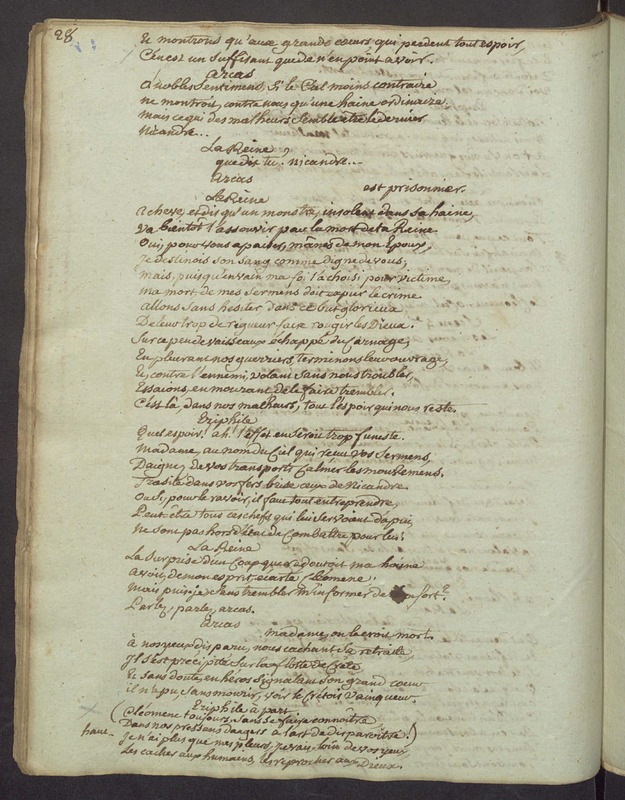 28
Et montrons qu'aux grands cœurs, qui perdent tout espoir,
C'en est un suffisant que de n'en point avoir.
Arcas
O nobles sentimens, si le Ciel moins contraire
ne montroit contre nous qu'une haine ordinaire
mais ce qui des malheurs semble être le dernier
Nicandre...
La Reine
que dis tu? Nicandre...
Arcas
est prisonnier.
La Reine
acheve, et dis qu'un monstre, insolent dans sa haine,
Va bientôt l'assouvir par la mort de ta Reine
Oui, pour vous apaiser, manes de mon Epoux,
Je destinois son sang comme digne de vous;
Mais, puisqu'en vain ma foi l'a choisi pour victime,
ma mort de mes sermens doit reparer le crime
allons sans hesiter dans ce but glorieux
De leur trop de rigueur faire rougir les Dieux.
Sur ce peu de vaisseaux échappé du Carnage,
En pleurant nos guerriers, terminons leur ouvrage,
Et, contre l'ennemi, volant sans nous troubler,
Essaions, en mourant de le faire trembler.
C'est là, dans nos malheurs, tout l'espoir qui nous reste.
Eriphile
Quel espoir! ah! l'effet en seroit trop funeste.
Madame, au nom du Ciel qui recut vos sermens,
Daignez de vos transports calmer les mouvemens.
Thrasile dans vos fers brise ceux de Nicandre
Oui, pour le ravoir, il faut tout entreprendre,
Peut être tous ces chefs qui lui servoient d'apui,
Ne sont pas hors d'état de combattre pour lui.
La Reine
La surprise d'un Coup que redoutoit ma haine
avoit de mon esprit ecarté Cleomene.
Mais puis-je sans trembler m'informer de son sort?
Parlez, parlez, arcas.
Arcas
madame, on le croit mort.
à nos yeux disparu, nous cachant sa retraite,
Il s'est précipité sur la flotte de Crete
Et sans doute, en heros signalant son grand cœur
il n'a pu, sans mourir, voir le Crétois vainqueur.
Eriphile à part
(Cléomene toujours, sans se faire connoître,
Dans nos pressans dangers a l'art de disparoitre!)
haut. Je n'ai plus que mes pleurs, je vais, loin de vos yeux,
Les cacher aux humains, les reprocher aux Dieux.